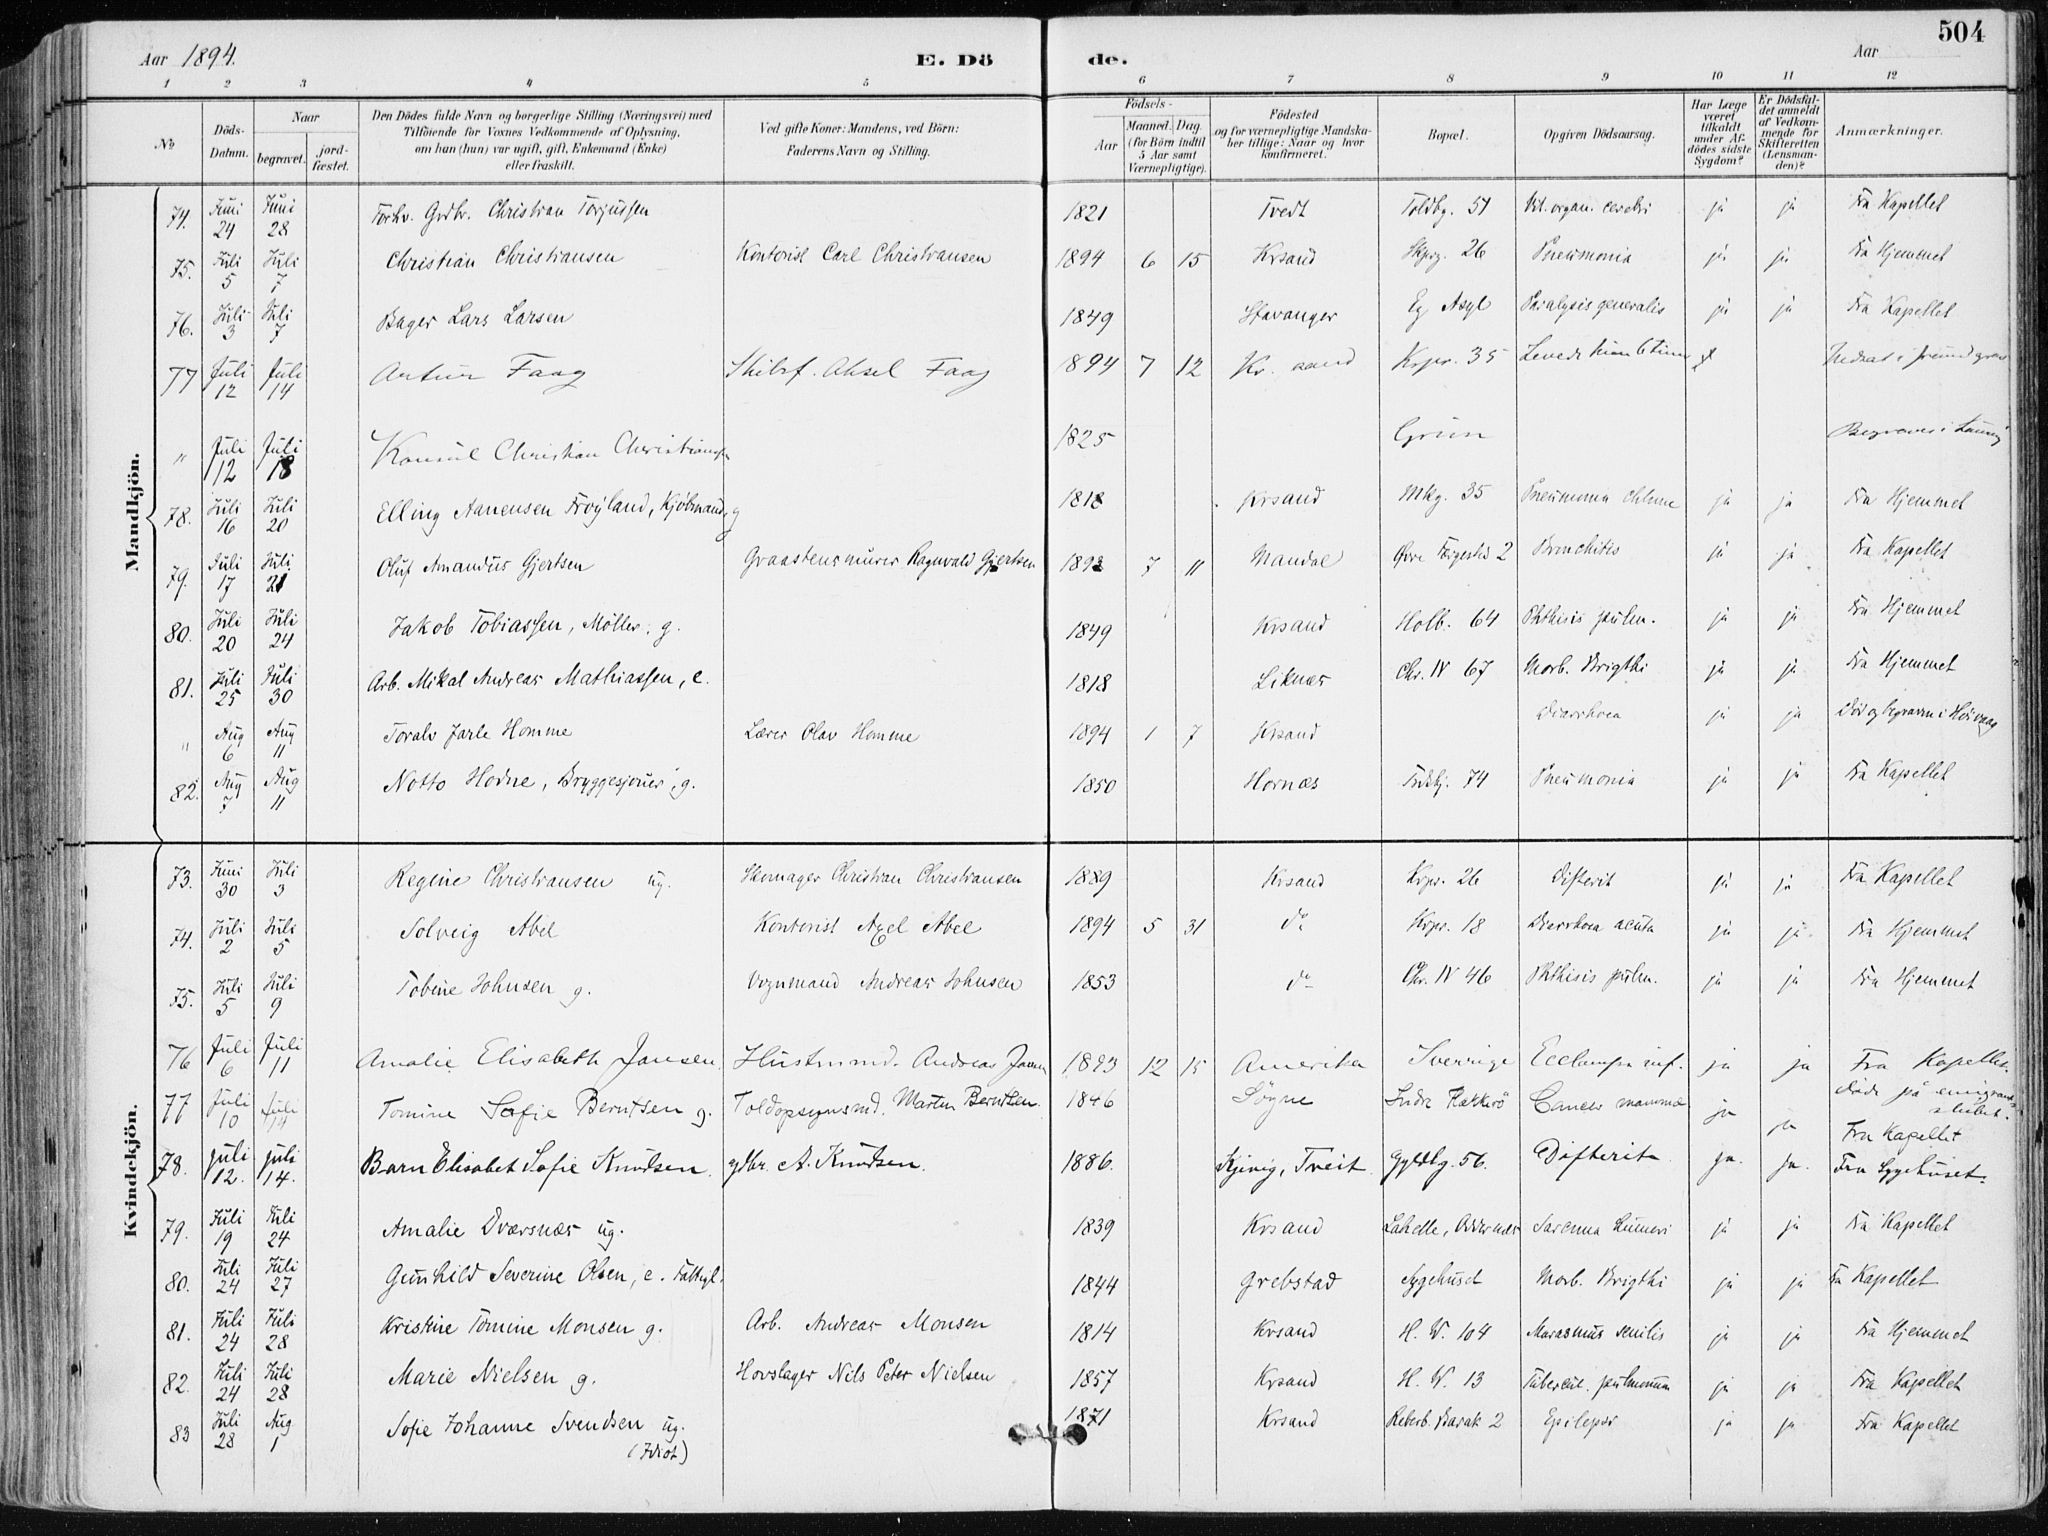 504
Aar 1894.
E. Dö
de.
Aar
1 2 3 4 5 6 7 8 9 10 11 12
No
Döds-Datum.
Naar
begravet.
jordfæstet.
Den Dödes fulde Navn og borgerlige Stilling (Næringsvei) med
Tilföiende for Voxnes Vedkommende af Oplysning,
om han (hun) var ugift, gift, Enkemand (Enke)
eller fraskilt.
Ved gifte Koner: Mandens, ved Börn:
Faderens Navn og Stilling.
Födsels-
Aar
Maaned. Dag.
(for Börn indtil
5 Aar samt
Værnepligtige).
Födested
og for værnepligtige Mandska-
ber tillige: Naar og hvor
konfirmeret.
Bopæl.
Opgiven Dödsaarsag.
Har Læge
været
tilkaldt
under Af-
dödes sidste
Sygdom?
Er Dödsfal-
det anmeldt
af Vedkom-
mende for
Skifteretten
(Lensman-
den)?
Anmærkninger.
Mandkjön.
74. Juni 24 Juni 28 Forhv. Grdbr. Christian Torjussen 1821 Tvedt Toldbg. 51 Vit. organ. cerebri ja ja Fra Kapellet
75. Juli 5 Juli 7 Christian Christiansen Kontorist Carl Christiansen 1894 6 15 Krsand 26 Pneumonia ja ja Fra Hjemmet
76. Juli 3 Juli 7 Bager Lars Larsen 1849 Stavanger Eg Asyl Paralysis generalis ja ja Fra Kapellet
77 Juli 12 Juli 14 Artur Faag Skibsf. Aksel Faag 1894 7 12 Kr. sand Krpr. 35 Levede kun 6 timer
" Juli 12 Juli 18 Konsul Christian Christiansen 1825 Grim Begraves i
78. Juli 16 Juli 20 Elling Aanensen Frøyland, Kjöbmand, g 1818 Krsand Mkg. 35 Pneumonia ja ja Fra Hjemmet
79. Juli 17 Juli 21 Oluf Amandus Gjertsen Graastensmurer Ragnvald Gjertsen 1892 7 11 Mandal Övre 2 Bronchitis ja ja Fra Kapellet
80. Juli 20 Juli 24 Jakob Tobiassen, Möller, g. 1849 Krsand Holb. 64 Phthisis pulm. ja ja Fra Hjemmet
81. Juli 25 Juli 30 Arb. Mikal Andreas Mathiassen, e. 1818 Liknes Chr. IV 67 Morb. Brigthi ja ja Fra Hjemmet
" Aug 6 Aug 11 Toralv Jarle Homme Lærer Olav Homme 1894 1 7 Krsand Diarrhoea ja ja Död og begraven i Hövaag
82. Aug 7 Aug 11 Notto Hodne, Bryggesjouer, g. 1850 Hornæs 74 Pneumonia ja ja Fra Kapellet
Kvindekjön.
73. Juni 30 Juli 3 Regine Christiansen ug. Skomager Christian Christiansen 1889 Krsand Krpr. 26 Difterit ja ja Fra Kapellet
74. Juli 2 Juli 5 Solveig Abel Kontorist Axel Abel 1894 5 31 do Krpr. 18 Diarrhoea acuta ja ja Fra Hjemmet
75. Juli 5 Juli 9 Tobine Johnsen g. Vognmand Andreas Johnsen 1853 do Chr. IV 46 Phthisis pulm. ja ja Fra Hjemmet
76 Juli 6 Juli 11 Amalie Elisabeth Jansen. Hustmmd. Andreas Jansen 1893 12 15 Amerika Sverrige Ecclampsia inf. ja ja Fra Kapellet. Döde på emigrantskibet.
77 Juli 10 Juli 14 Tomine Sofie Berntsen g. Toldopsynsmd. Martin Berntsen. 1846 Sögne Indre Flekkerö Cancer mammæ ja ja Fra Kapellet
78. juli 12. juli 14. Barn Elisabet Sofie Knudsen. gdbr. A. Knudsen. 1886. Kjevig, Tveit Gyldlg. 56. Difterit ja. ja. Fra Sygehuset.
79. Juli 19 Juli 24 Amalie Dværsnæs ug. 1839 Krsand Lahelle, Oddernes Sarcoma humeri ja ja Fra Kapellet
80. Juli 24 Juli 27 Gunhild Severine Olsen, e. Fattigl. 1844 Grebstad Sygehuset Morb. Brigthi ja ja Fra Kapellet
81. Juli 24 Juli 28 Kristine Tomine Monsen g. Arb. Andreas Monsen 1814 Krsand H. W. 104 Marasmus senilis ja ja Fra Hjemmet
82. Juli 24 Juli 28 Marie Nielsen g. Hovslager Nils Peter Nielsen 1857 Krsand H. W. 13 Tubercul. pulmonum ja ja Fra Kapellet
83 Juli 28 Aug 1 Sofie Johanne Svendsen ug. (Idiot) 1871 Krsand Reberb. Barak 2 Epilepsi ja ja Fra Kapellet